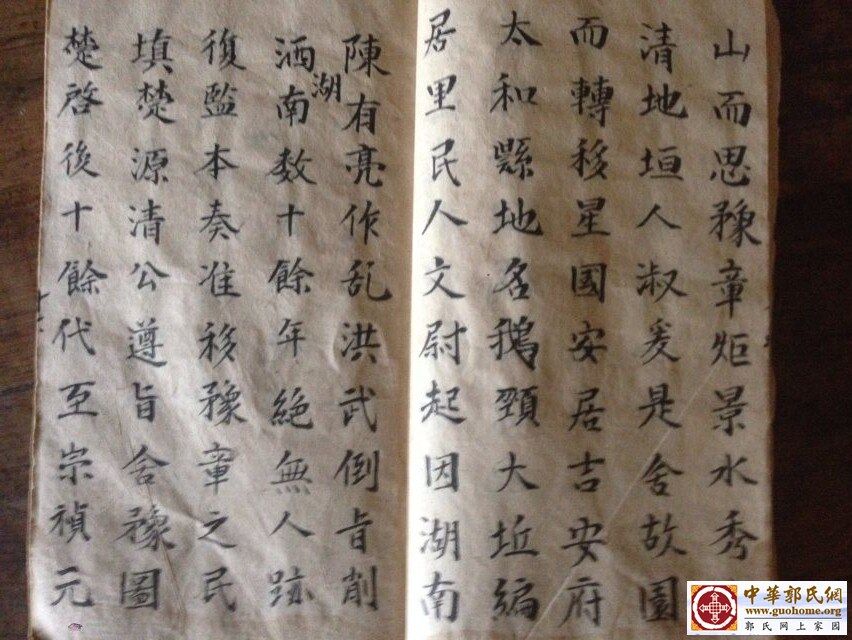 山而思豫章炬景水秀
清地垣人淑爰是舍故園
而轉移星國安居吉安府
太和縣地名鵝頸大坵編
居里民人文尉起因湖南
陳有亮作乱洪武倒旨削
洒湖南数十餘年絕無人跡
復監本奏准移豫章之民
填楚源清公遵旨舍豫圖
楚啓後十餘代至崇禎元
中華郭氏網
www.guohome.org
郭氏网上家园